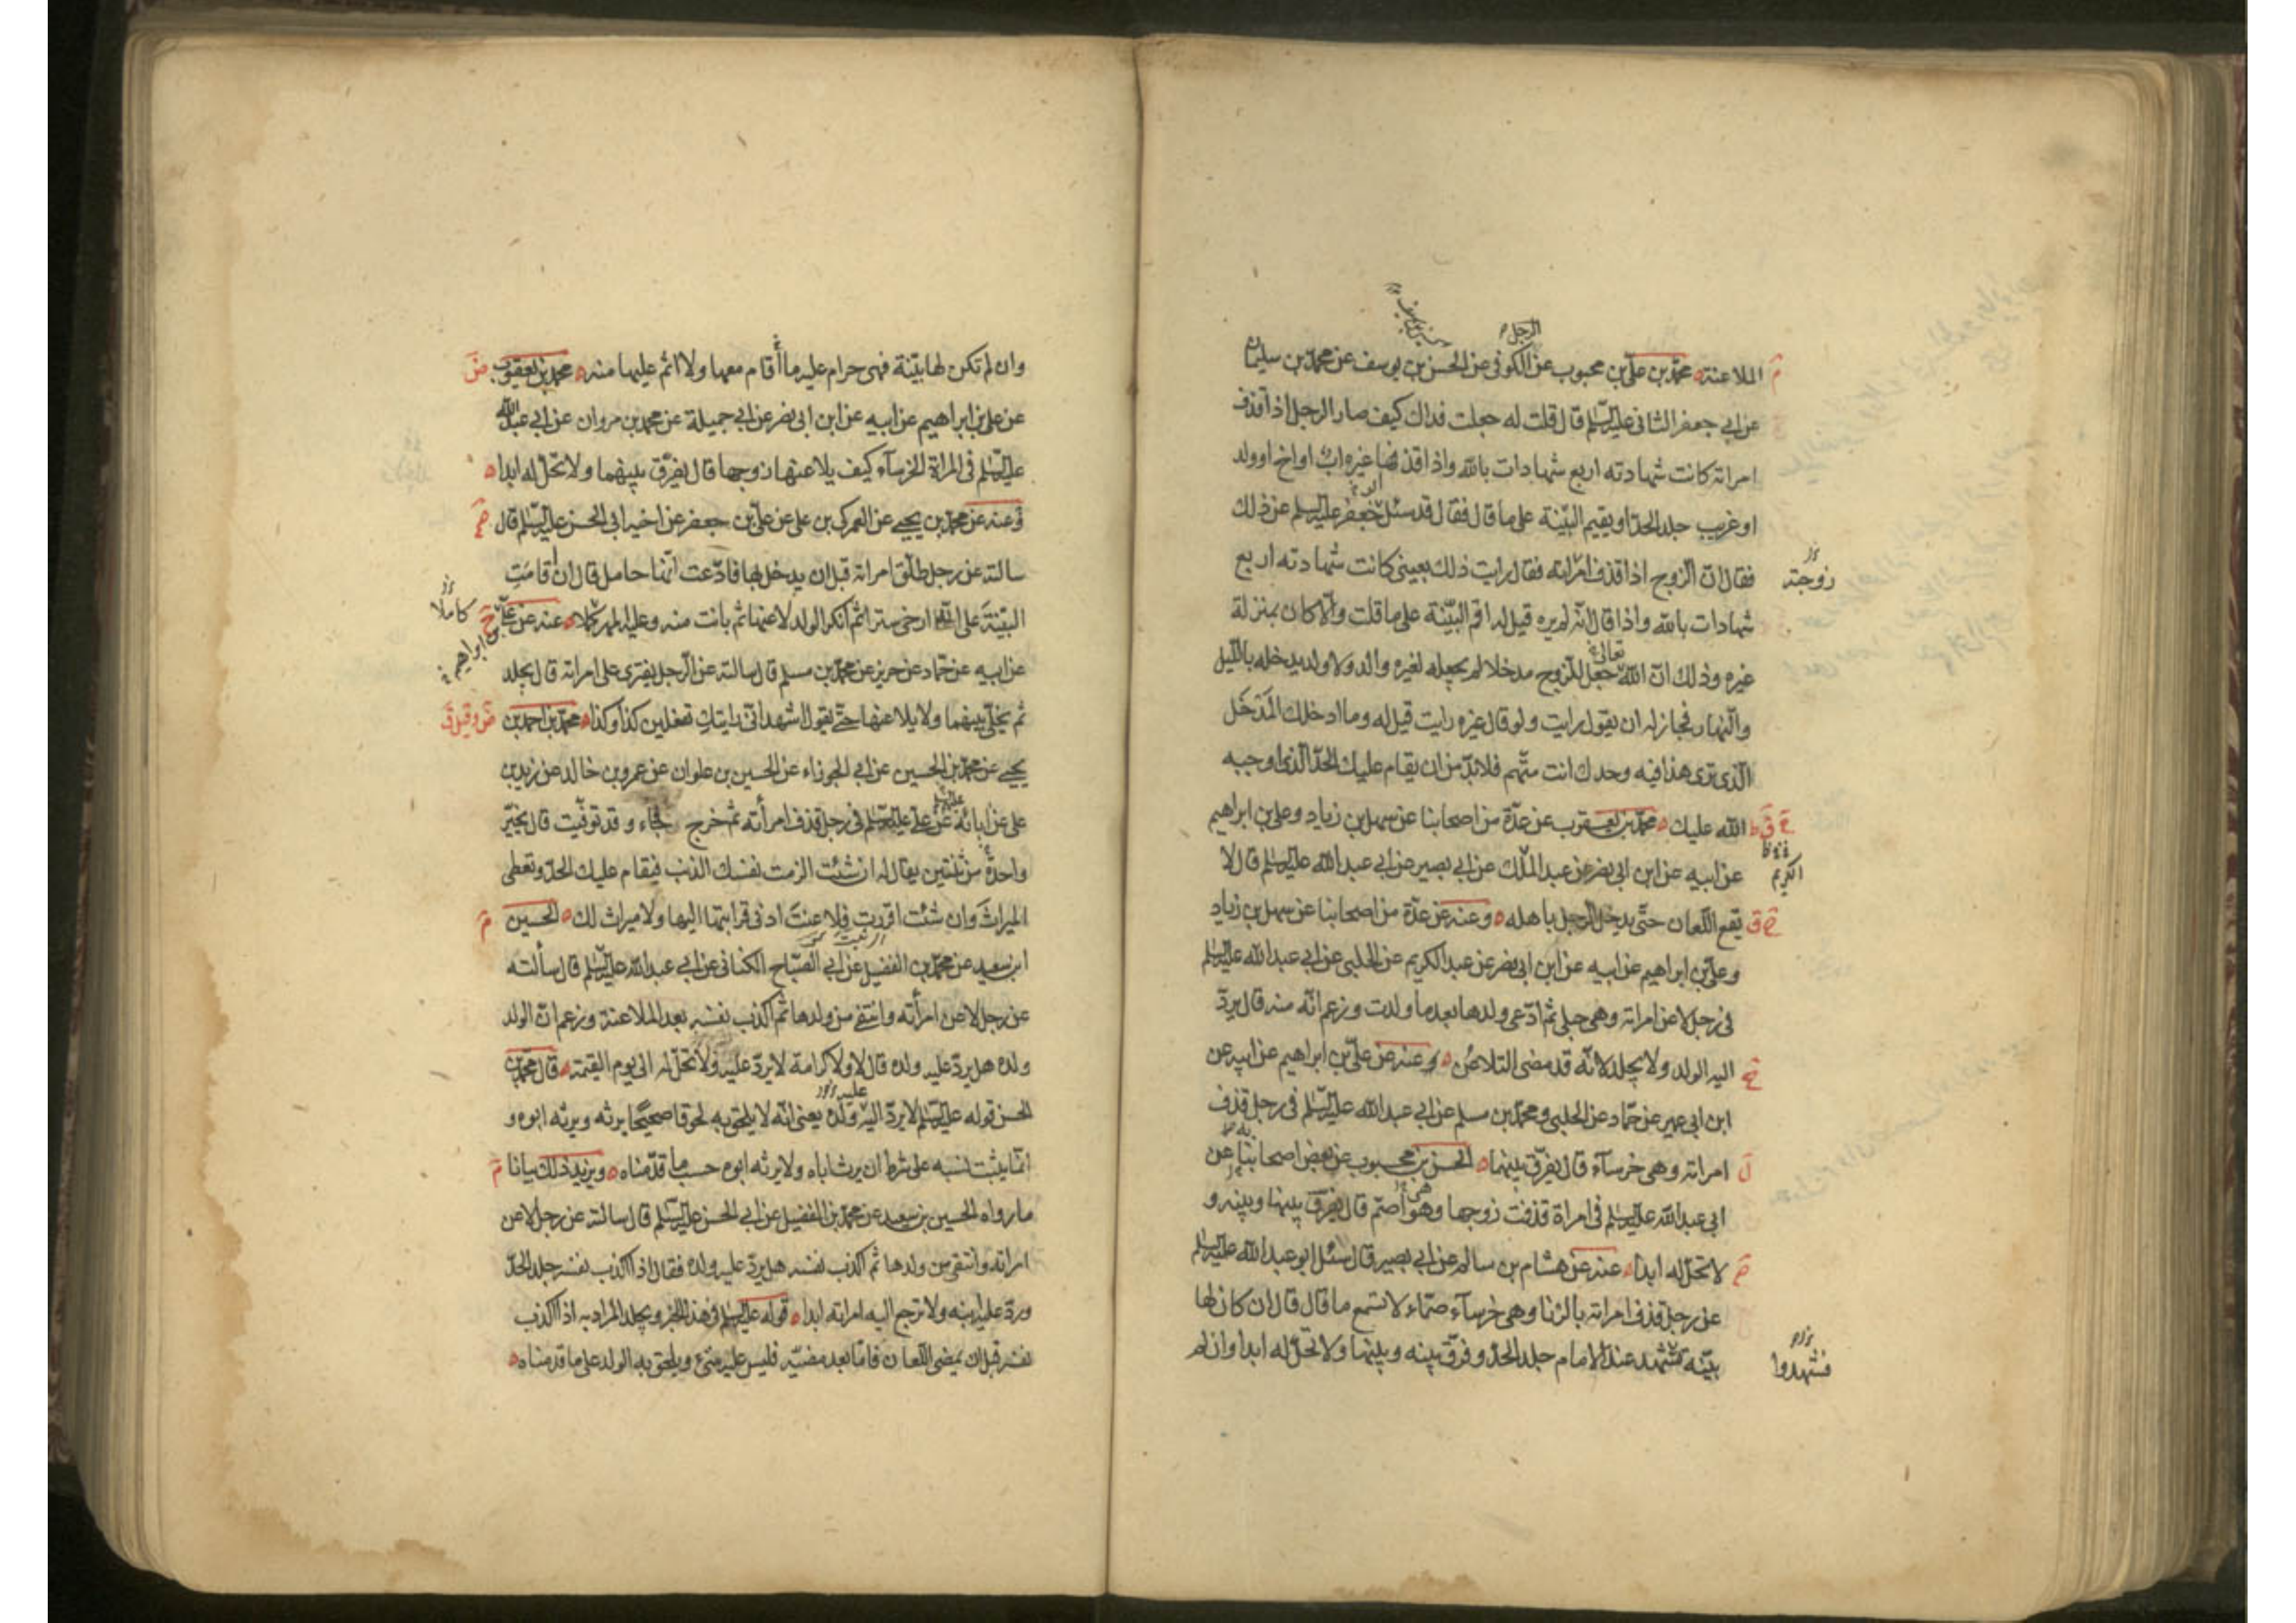 الرجل
الملاعنة محمد بن علي بن محبوب عن الكوفي عن الحسن بن يوسف عن محمد بن سليمان
عن ابي جعفر الثاني عليه السلم قال قلت له جعلت فداك كيف صار الرجل اذا قذف
امراته كانت شهادته اربع شهادات بالله واذا قذفها غيره اب او اخ او ولد
او غريب جلد الحد او يقيم البينة على ما قال فقال قد سئل جعفر عليه السلم عن ذلك
فقال ان الزوج اذا قذف امراته فقال رايت ذلك بعيني كانت شهادته اربع
زوجته
شهادات بالله واذا قال انه لم يره قيل له اقم البينة على ما قلت والا كان بمنزلة
غيره وذلك ان الله تعالى جعل للزوج مدخلا لم يجعله لغيره والد ولا ولد يدخله بالليل
والنهار فجاز له ان يقول رايت ولو قال غيره رايت قيل له وما ادخلك المدخل
الذي ترى هذا فيه وحدك انت متهم فلا بد من ان يقام عليك الحد الذي اوجبه
الله عليك محمد بن يعقوب عن عدة من اصحابنا عن سهل بن زياد وعلي بن ابراهيم
عن ابيه عن ابن ابي نصر عن عبد الملك عن ابي بصير عن ابي عبد الله عليه السلم قال لا
الكريم
يقع اللعان حتى يدخل الرجل باهله وعنه عن عدة من اصحابنا عن سهل بن زياد
وعلي بن ابراهيم عن ابيه عن ابن ابي نصر عن عبد الكريم عن الحلبي عن ابي عبد الله عليه السلم
في رجل لاعن امراته وهي حبلى ثم ادعى ولدها بعد ما ولدت وزعم انه منه قال يرد
اليه الولد ولا يجلد لانه قد مضى التلاعن وعنه عن علي بن ابراهيم عن ابيه عن
ابن ابي عمير عن حماد عن الحلبي ومحمد بن مسلم عن ابي عبد الله عليه السلم في رجل قذف
امراته وهي خرسآء قال يفرق بينهما الحسن بن محبوب عن بعض اصحابنا عن
ابي عبد الله عليه السلم في امراة قذفت زوجها وهو اصم قال يفرق بينها وبينه و
لا تحل له ابدا عنه عن هشام بن سالم عن ابي بصير قال سئل ابو عبد الله عليه السلم
عن رجل قذف امراته بالزنا وهي خرسآء صماء لا تسمع ما قال قال ان كان لها
بينة تشهد عند الامام جلد الحد وفرق بينه وبينها ولا تحل له ابدا وان لم
فشهدوا
وان لم تكن لها بينة فهي حرام عليه ما أقام معها ولا اثم عليها منه محمد بن يعقوب
عن علي بن ابراهيم عن ابيه عن ابن ابي نصر عن ابي جميلة عن محمد بن مروان عن ابي عبد الله
عليه السلم في المراة الخرسآء كيف يلاعنها زوجها قال يفرق بينهما ولا تحل له ابدا
وعنه عن محمد بن يحيى عن العمركي بن علي عن علي بن جعفر عن اخيه ابي الحسن عليه السلم قال
سالته عن رجل طلق امراته قبل ان يدخل بها فادعت انها حامل قال ان اقامت
البينة على انه ارخى سترا ثم انكر الولد لاعنها ثم بانت منه وعليه المهر كملا عنه عن علي
كاملا
بن ابراهيم
عن ابيه عن حماد عن حريز عن محمد بن مسلم قال سالته عن الرجل يفترى على امراته قال يجلد
ثم يخلى بينهما ولا يلاعنها حتى يقول اشهد اني رايتك تفعلين كذا وكذا محمد بن احمد بن
يحيى عن محمد بن الحسين عن ابي الجوزاء عن الحسين بن علوان عن عمرو بن خالد عن زيد بن
علي عن آبائه عن علي عليه السلم في رجل قذف امرأته ثم خرج فجاء وقد توفيت قال يخير
واحدة من ثنتين يقال له ان شئت الزمت نفسك الذنب فيقام عليك الحد وتعطى
الميراث وان شئت اقررت فلاعنت ادنى قرابتها اليها ولا ميراث لك الحسين
ابن سعيد عن محمد بن الفضيل عن ابي الصباح الكناني عن ابي عبد الله عليه السلم قال سألته
عن رجل لاعن امرأته وانتفى من ولدها ثم اكذب نفسه بعد الملاعنة وزعم ان الولد
ولده هل يرد عليه ولده قال لا ولا كرامة لا يرد عليه ولا تحل له الى يوم القيمة قال محمد بن
الحسن قوله عليه السلم لا يرد اليه ولده يعني انه لا يلحق به لحوقا صحيحا يرثه ويرثه ابوه و
انما يثبت نسبه على شرط ان يرث اباه ولا يرثه ابوه حسب ما قدمناه ويزيد ذلك بيانا
ما رواه الحسين بن سعيد عن محمد بن الفضيل عن ابي الحسن عليه السلم قال سالته عن رجل لاعن
امراته وانتفى من ولدها ثم اكذب نفسه هل يرد عليه ولده فقال اذا اكذب نفسه جلد الحد
ورد عليه ابنه ولا ترجع اليه امراته ابدا قوله عليه السلم في هذا الخبر ويجلد المراد به اذا اكذب
نفسه قبل ان يمضى اللعان فاما بعد مضيه فليس عليه شئ ويلحق به الولد على ما قدمناه